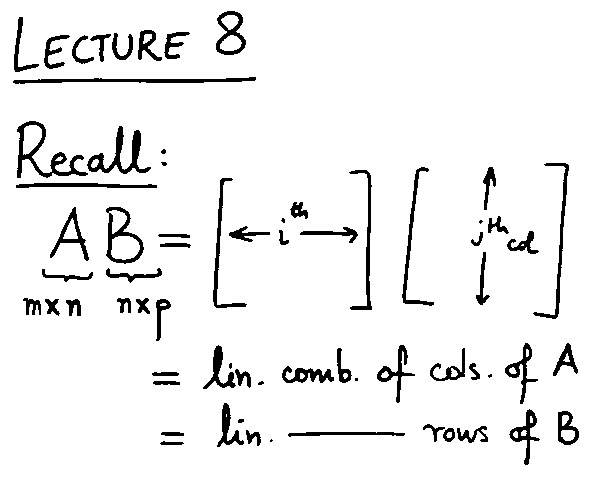 LECTURE 8
Recall:
AB = [ ← iᵗʰ → ] [ jᵗʰ col ]
m×n n×p
= lin. comb. of cols. of A
= lin. —— rows of B